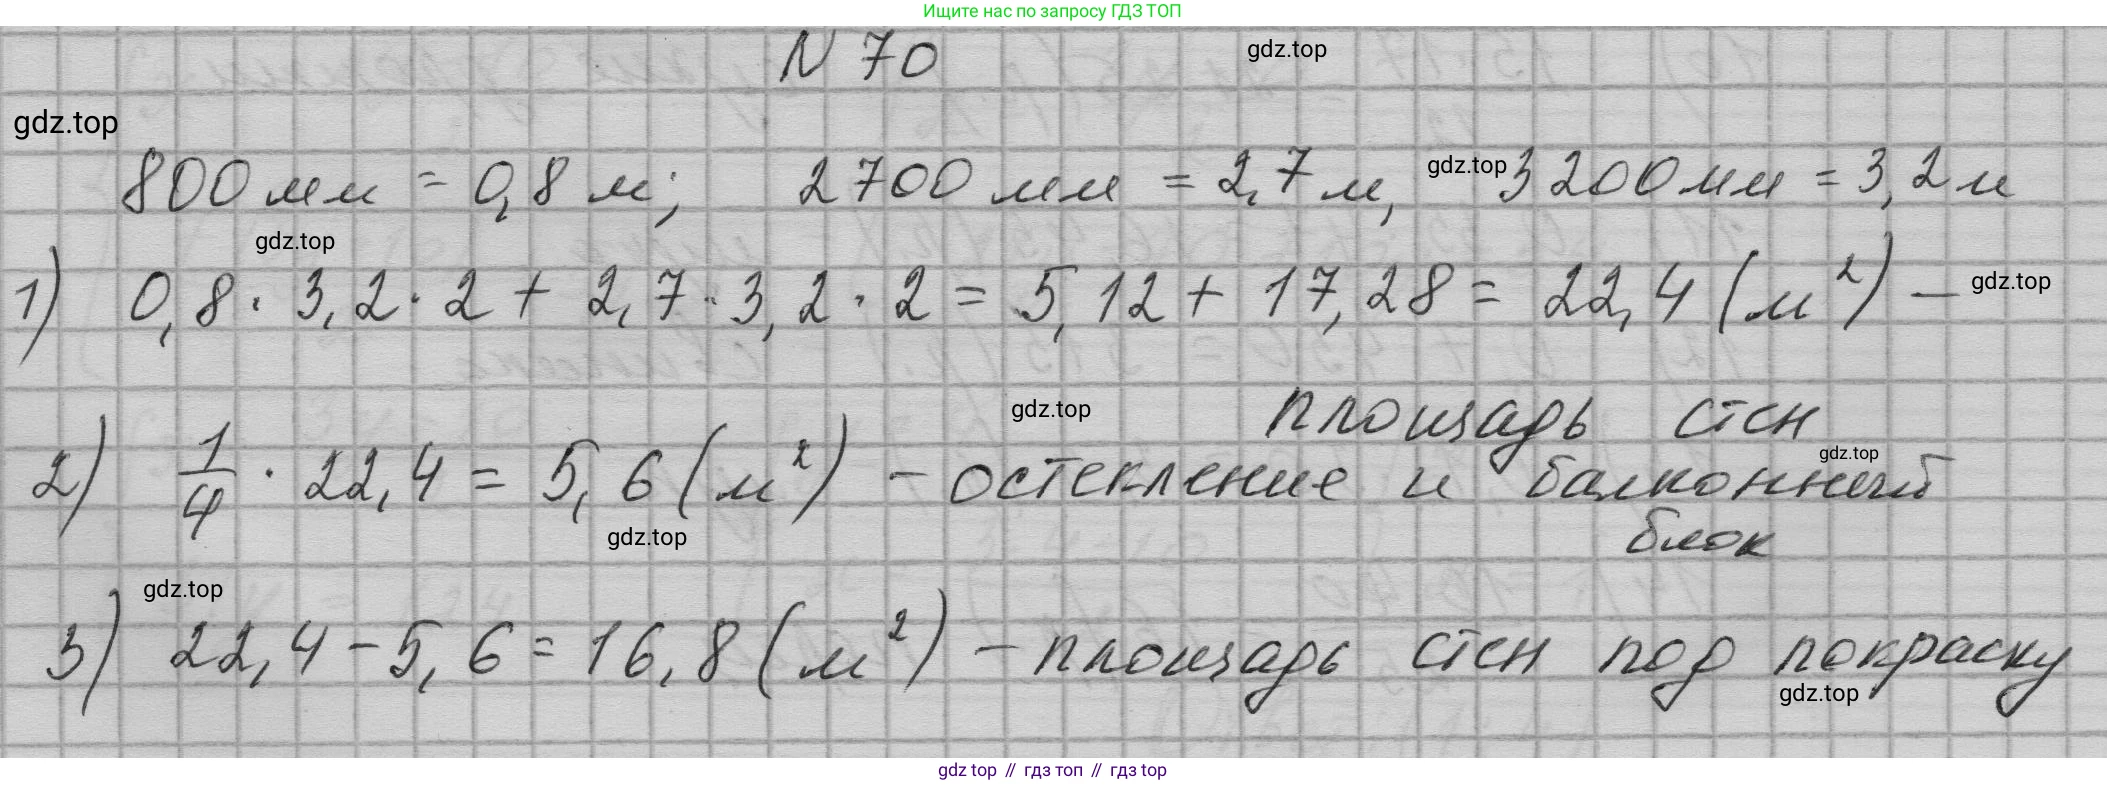 Ищите нас по запросу ГДЗ ТОП
N 70
gdz.top
gdz.top
800 мм = 0,8 м; 2700 мм = 2,7 м, gdz.top 3200 мм = 3,2 м
gdz.top
1) 0,8 · 3,2 · 2 + 2,7 · 3,2 · 2 = 5,12 + 17,28 = 22,4 (м²) — gdz.top
площадь стен
gdz.top
2) 1/4 · 22,4 = 5,6 (м²) – остекление и балконный
gdz.top
блок
gdz.top
gdz.top
3) 22,4 – 5,6 = 16,8 (м²) – площадь стен под покраску
gdz.top
gdz top // гдз топ // gdz top